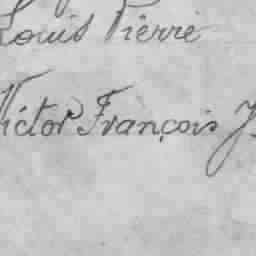 Louis Pierre
Victor François J